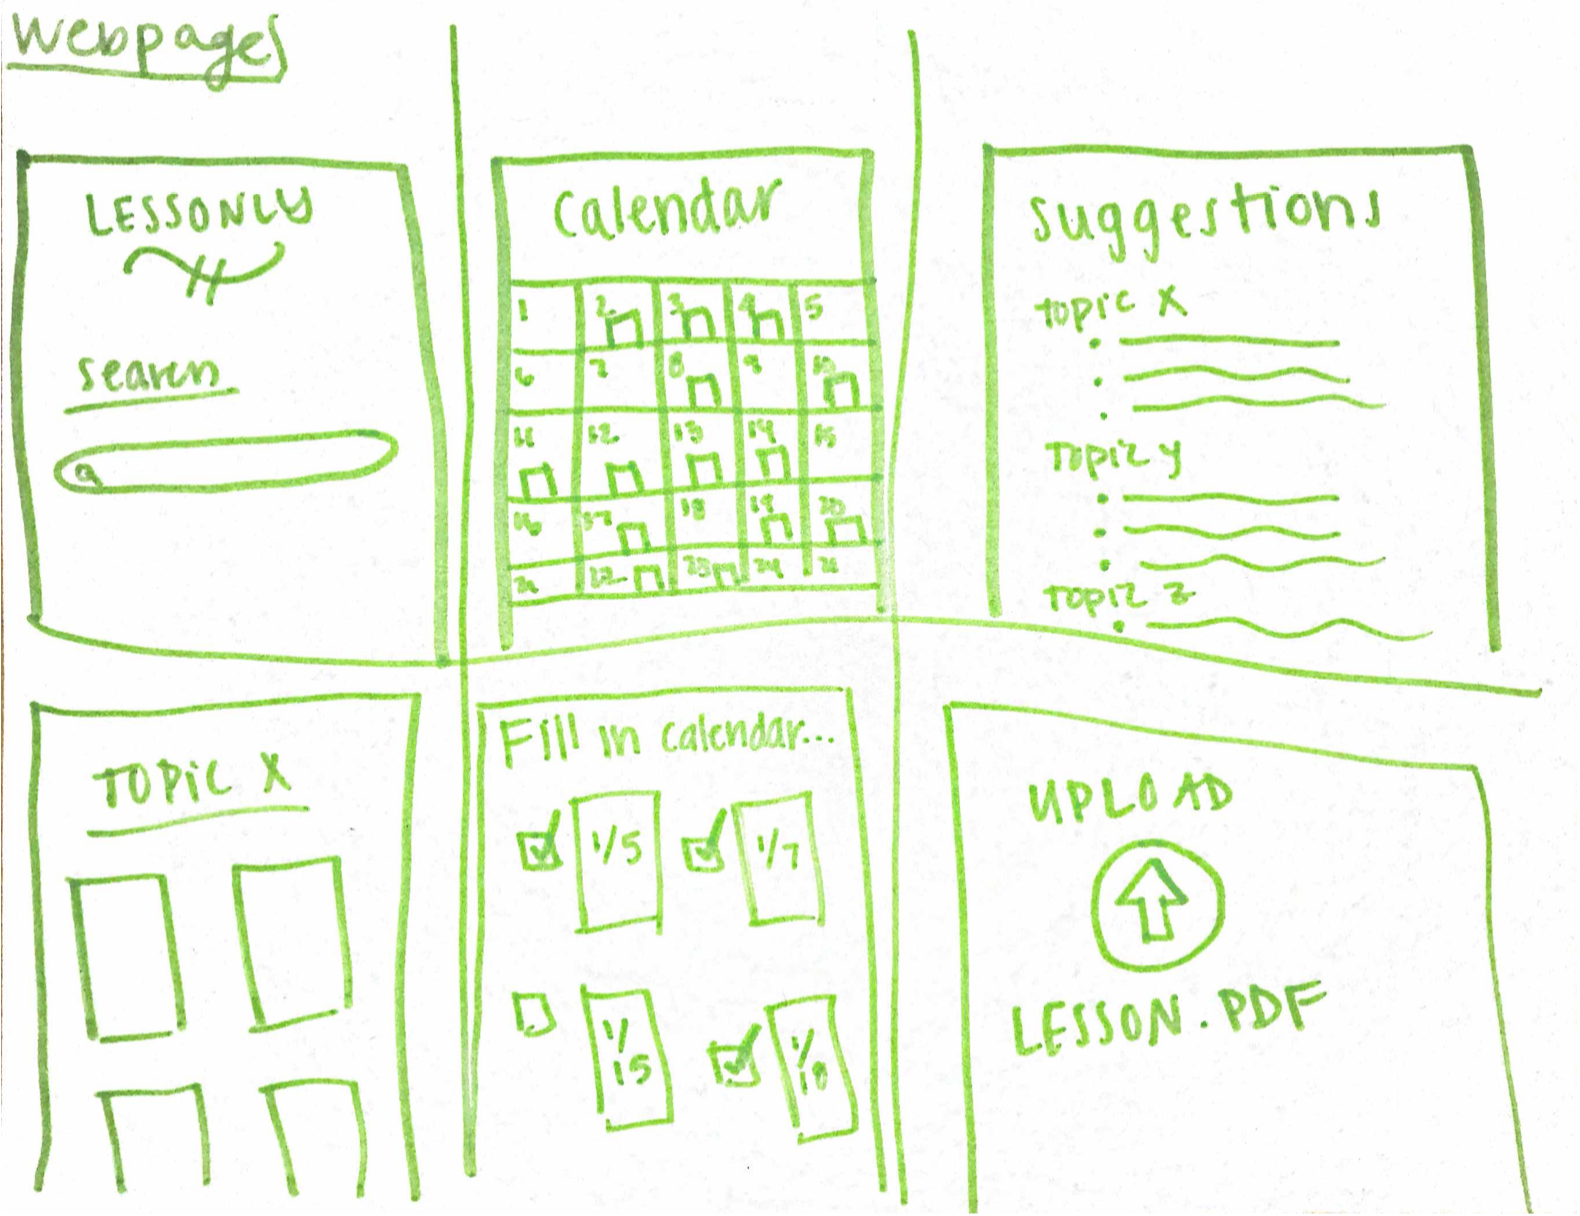 Webpages
LESSONLY
search
Calendar
1 2 3 4 5
6 7 8 9 10
11 12 13 14 15
16 17 18 19 20
21 22 23 24
suggestions
topic X
Topic y
Topic z
TOPIC X
Fill in calendar...
1/5 1/7
1/
15
1/
10
UPLOAD
LESSON.PDF